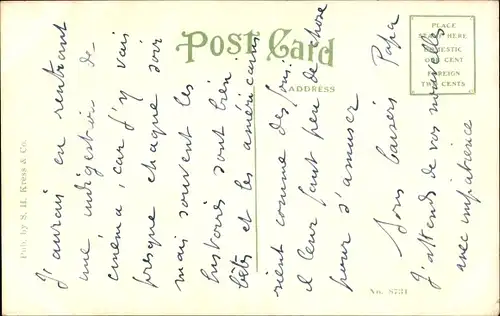 POST CARD
ADDRESS
PLACE
STAMP HERE
DOMESTIC
ONE CENT
FOREIGN
TWO CENTS
Pub. by S. H. Kress & Co.
No. 8731
J'aurais en rentrant
une indigestion de
cinéma, car j'y vais
presque chaque soir
mais souvent les
histoires sont bien
bêtes et les américains
rient comme des fous.
il leur faut peu de chose
pour s'amuser
Bons baisers Papa
J'attends de vos nouvelles
avec impatience